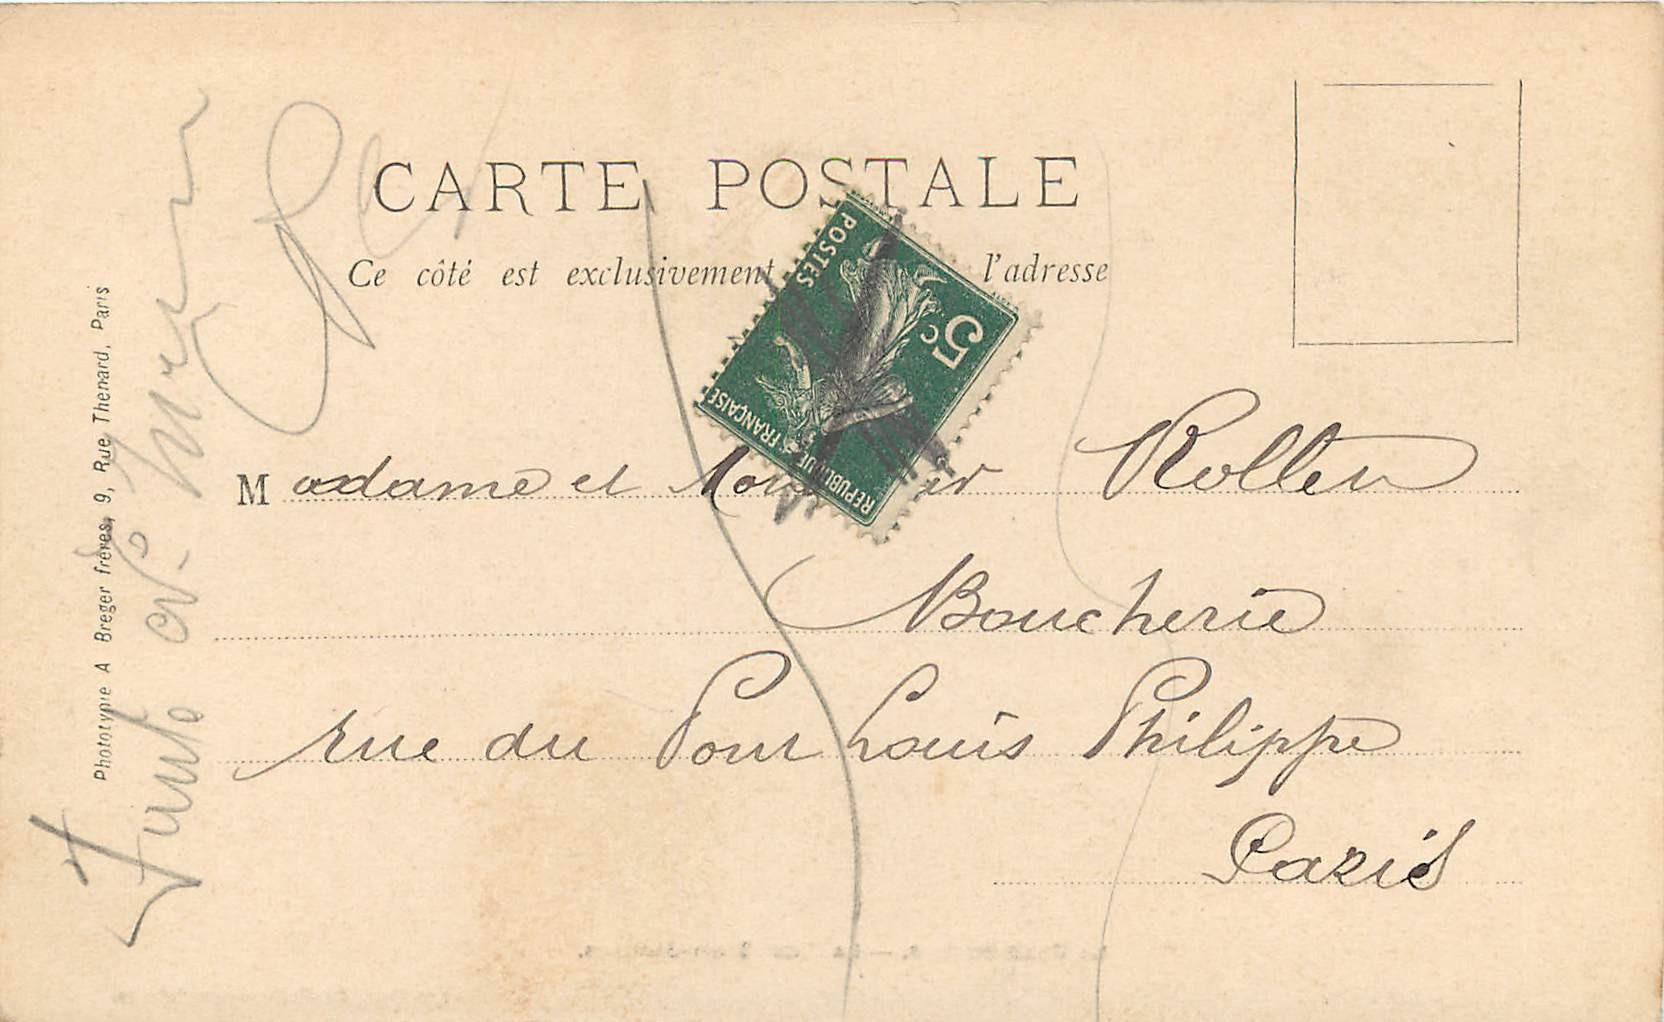 CARTE POSTALE
Ce côté est exclusivement l'adresse
POSTES
5c
REPUBLIQUE FRANÇAISE
Madame et Monsieur Rollen
Boucherie
rue du Pont Louis Philippe
Paris
Phototypie A Breger frères, 9, Rue Thenard, Paris